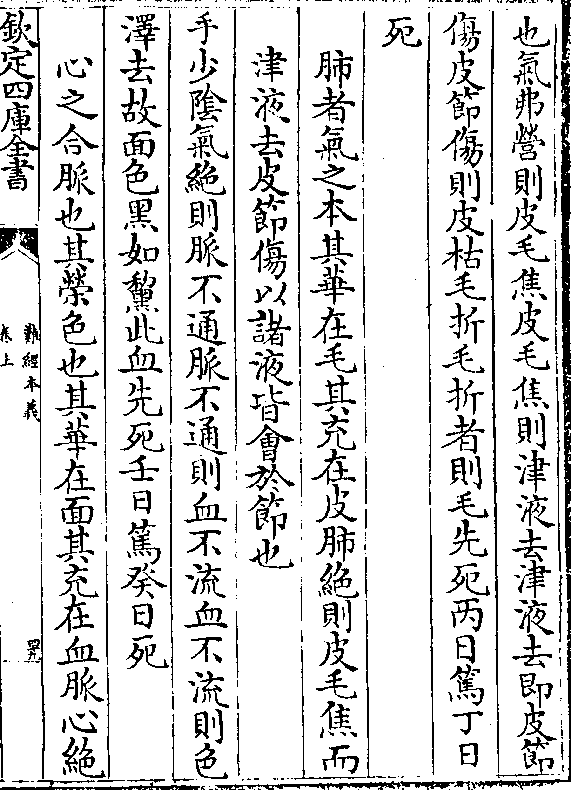 也氣弗營則皮毛焦皮毛焦則津液去津液去即皮節
傷皮節傷則皮枯毛折毛折者則毛先死丙日篤丁日
死
肺者氣之本其華在毛其充在皮肺絕則皮毛焦而
津液去皮節傷以諸液皆會於節也
手少陰氣絕則脈不通脈不通則血不流血不流則色
澤去故面色黑如黧此血先死壬日篤癸日死
心之合脈也其榮色也其華在面其充在血脈心絕
欽定四庫全書
難經本義
卷上
四九